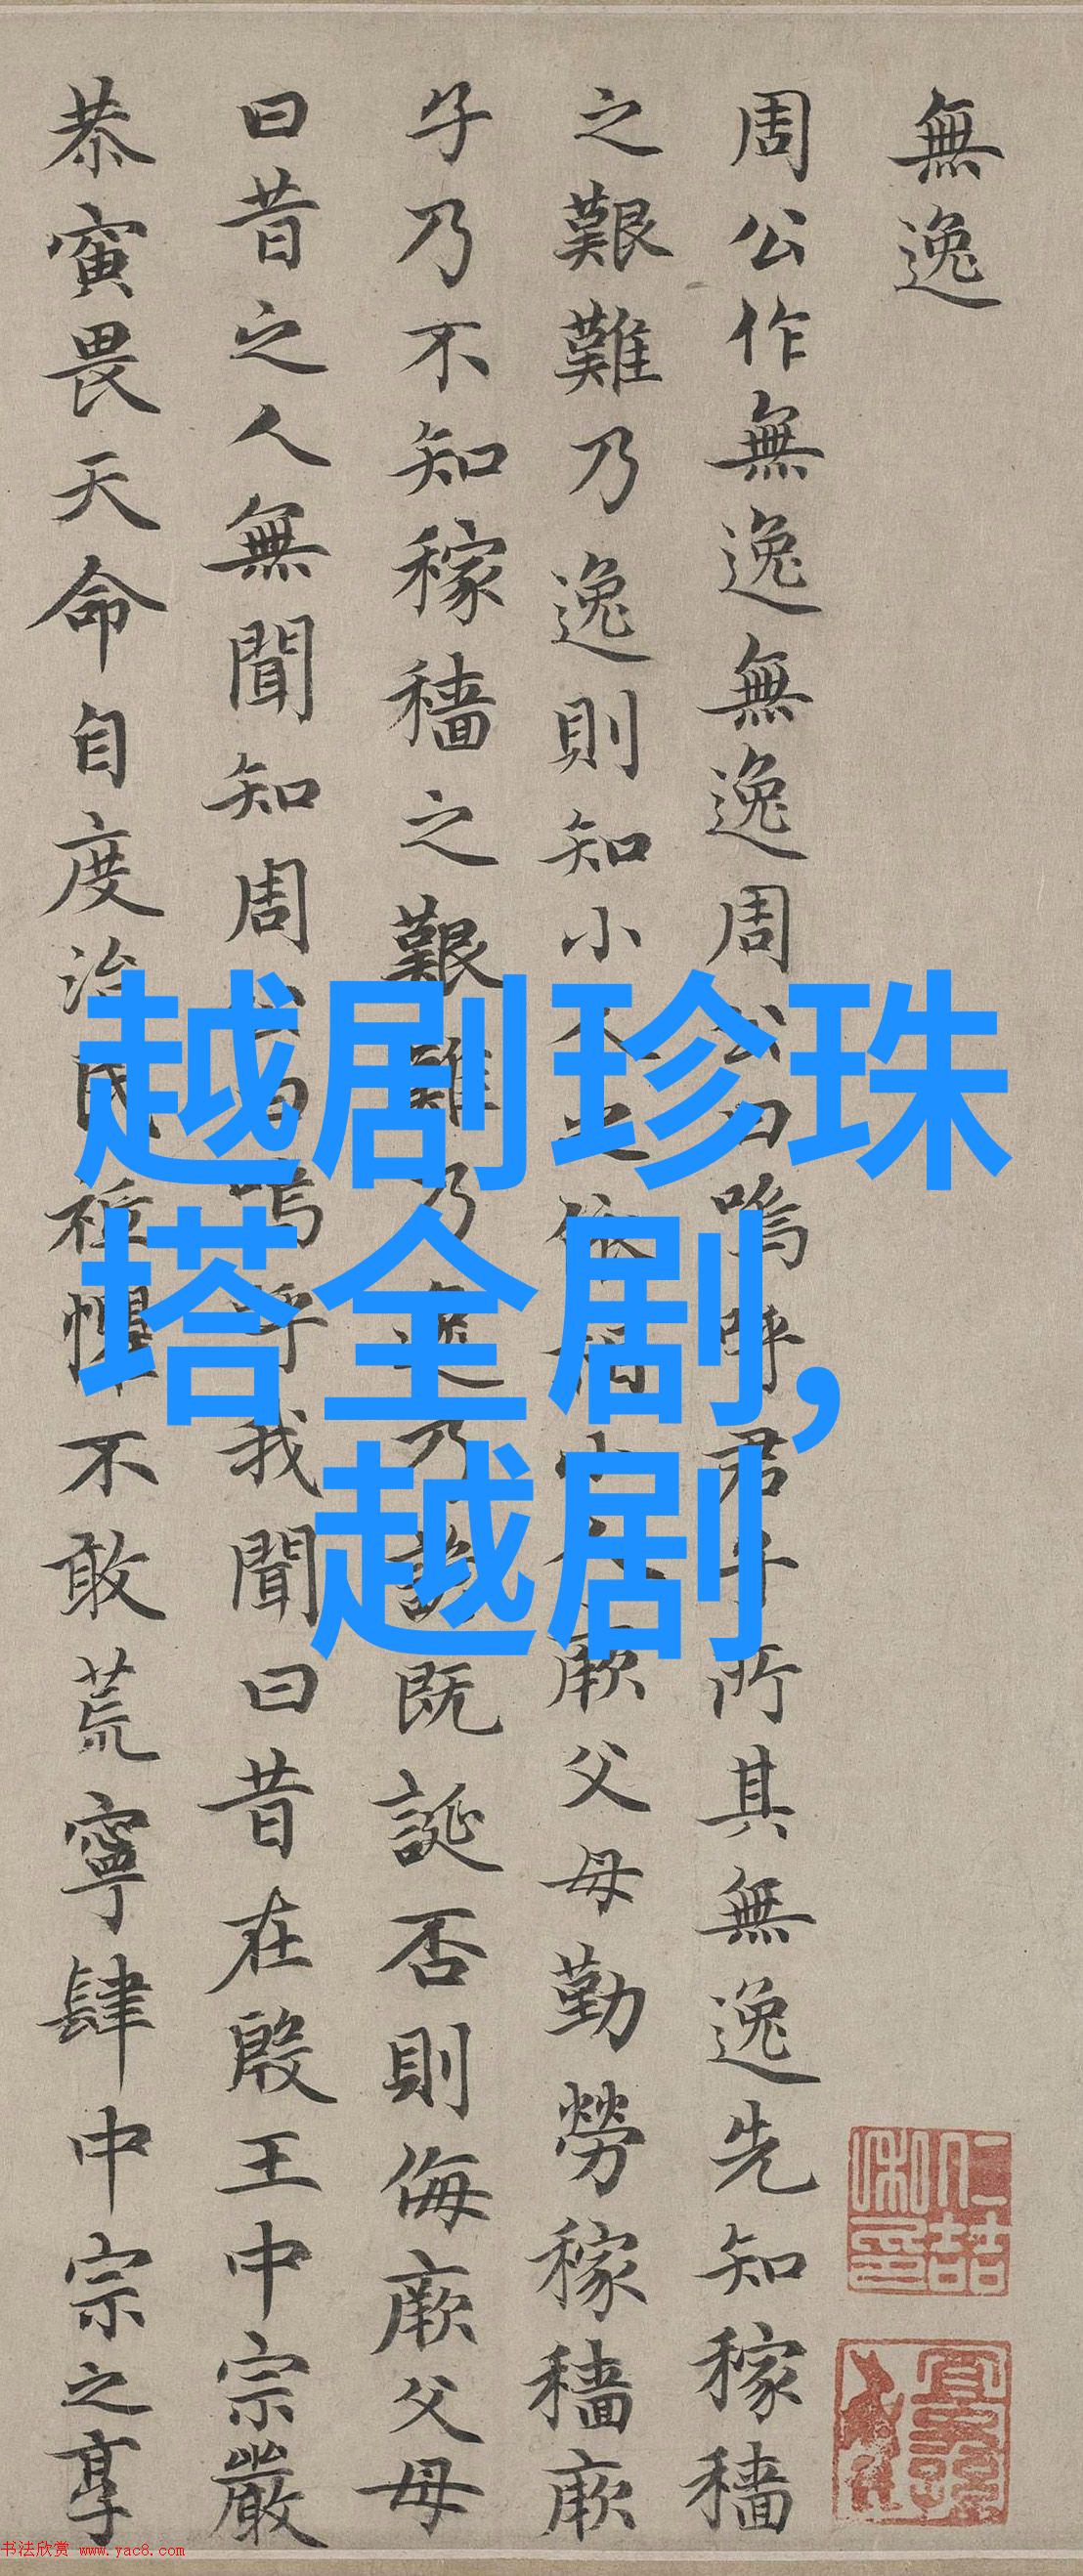 無逸
周公作無逸無逸周公曰嗚呼君子所其無逸先知稼穡
之艱難乃逸則知小人之依相小人厥父母勤勞稼穡厥
子乃不知稼穡之艱難乃逸乃諺既誕否則侮厥父母
曰昔之人無聞知周公曰嗚呼我聞曰昔在殷王中宗嚴
恭寅畏天命自度治民祗懼不敢荒寧肆中宗之享
越剧珍珠
塔全剧,
越剧
书法欣赏 www.yac8.com